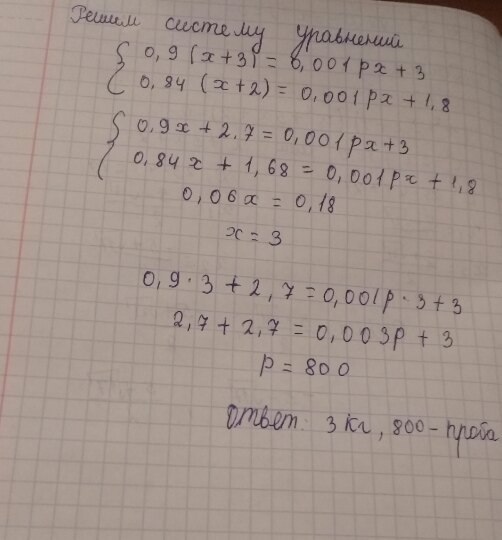 Решим систему уравнений
0,9 (x+3) = 0,001px + 3
0,84 (x+2) = 0,001px + 1,8
0,9x + 2,7 = 0,001px+3
0,84x + 1,68 = 0,001px + 1,8
0,06x = 0,18
x = 3
0,9·3 + 2,7 = 0,001p·3+3
2,7+2,7 = 0,003p + 3
p = 800
Ответ: 3 кг, 800-проба